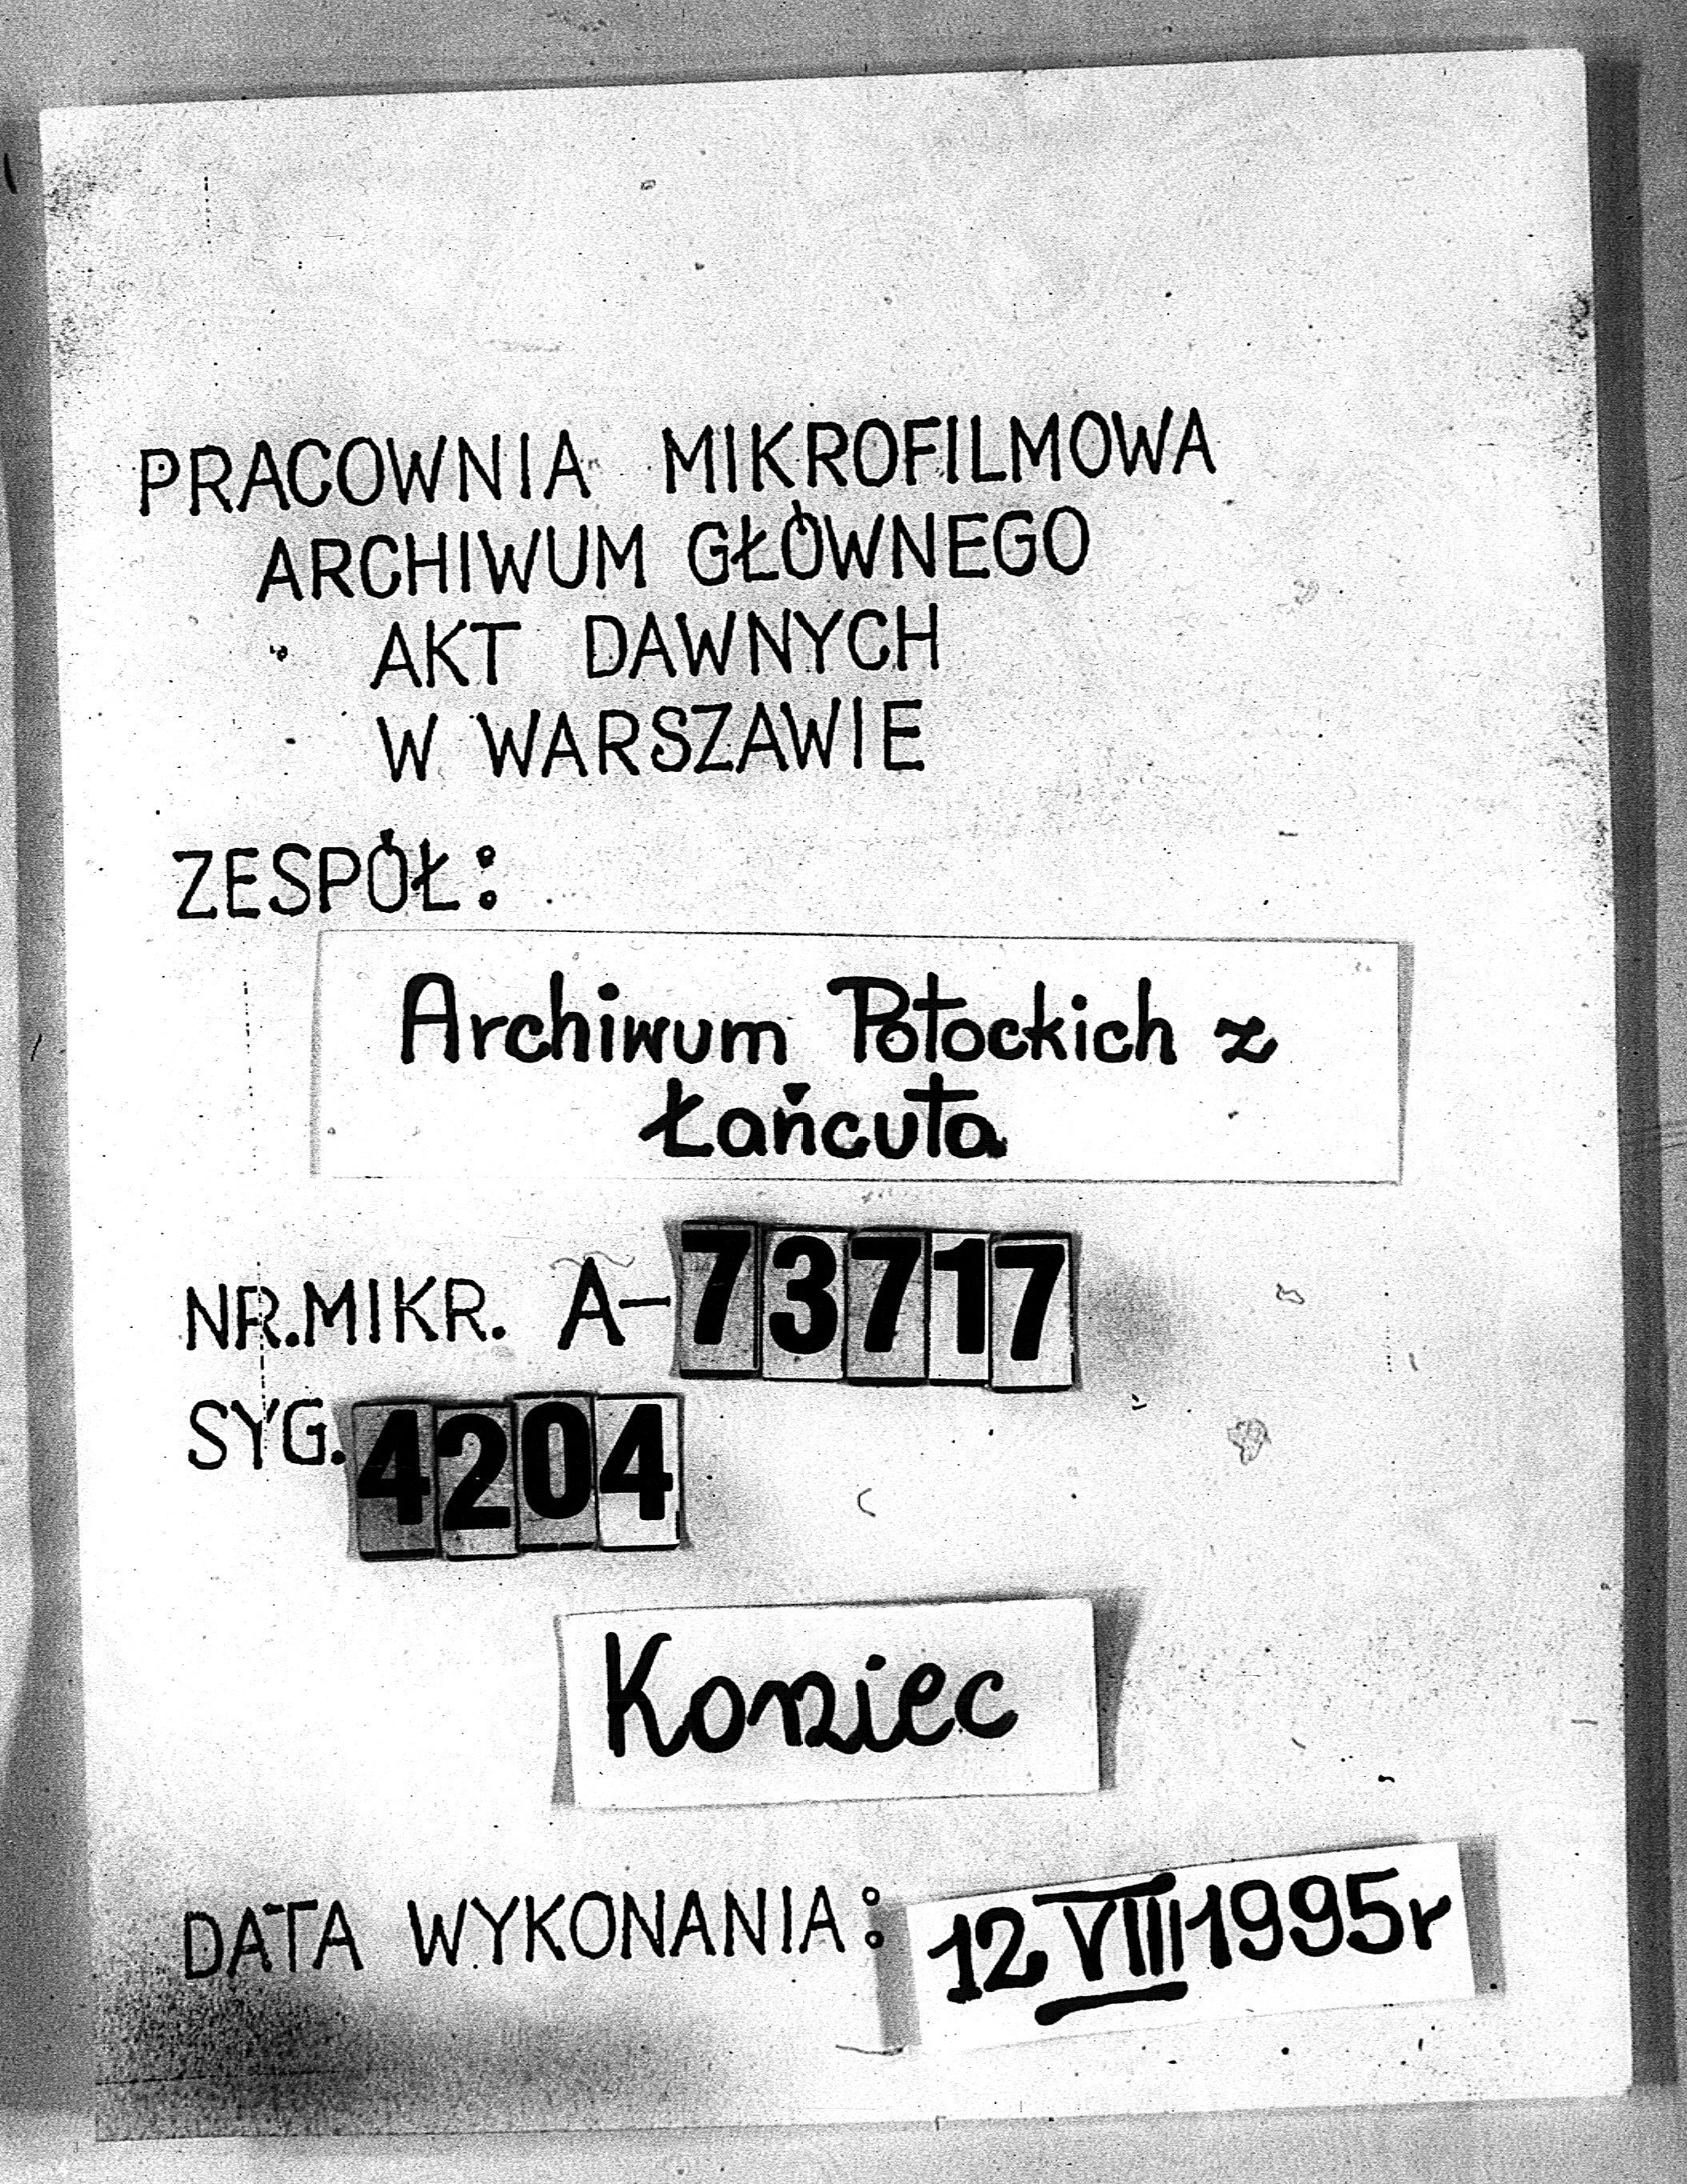 PRACOWNIA MIKROFILMOWA
ARCHIWUM GŁÓWNEGO
AKT DAWNYCH
W WARSZAWIE
ZESPÓŁ:
Archiwum Potockich z
Łańcuta
NR.MIKR. A-73717
SYG. 4204
Koniec
DATA WYKONANIA: 12 VIII 1995r